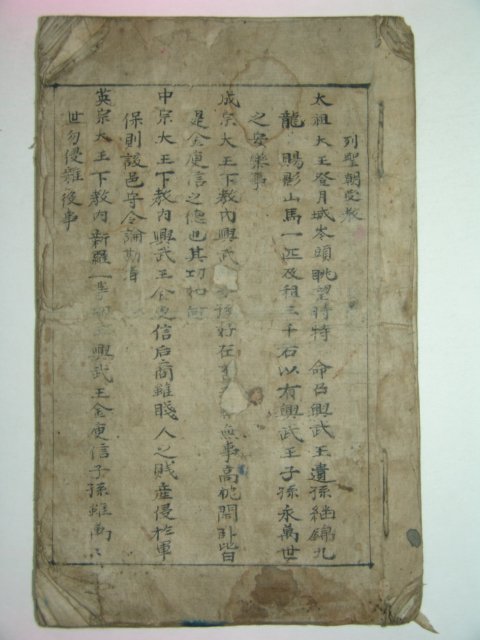 列聖朝受教
太祖大王登月城岑頭眺望時特 命召興武王遺孫繼錦九
龍 賜影山馬一匹及租三千石以有興武王子孫永萬世
之安樂事
成宗大王下敎內興武 後孫在 無事高枕閑臥皆
是金庾信之德也其功如何
中宗大王下敎內興武王金庾信后裔雖賤人之賎産侵於軍
保則該邑守令論勘事
英宗大王下敎內新羅一 興武王金庾信子孫雖萬
世勿侵難役事